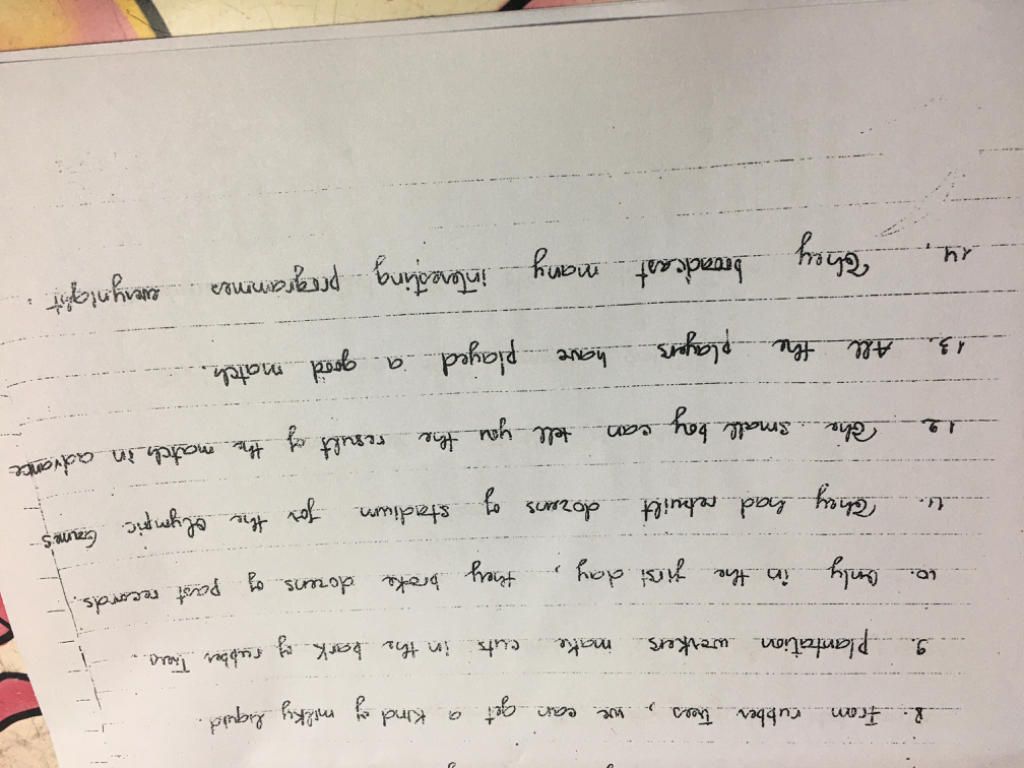 8. From rubber Trees, we can get a kind of milky liquid.
9. Plantation workers make cuts in the bark of rubber Trees.
10. Only in the first day, they broke dozens of past records.
11. They had rebuilt dozens of stadium for the Olympic Games
12. The small boy can tell you the result of the match in advance
13. All the players have played a good match.
14. They broadcast many interesting programmes everynight.